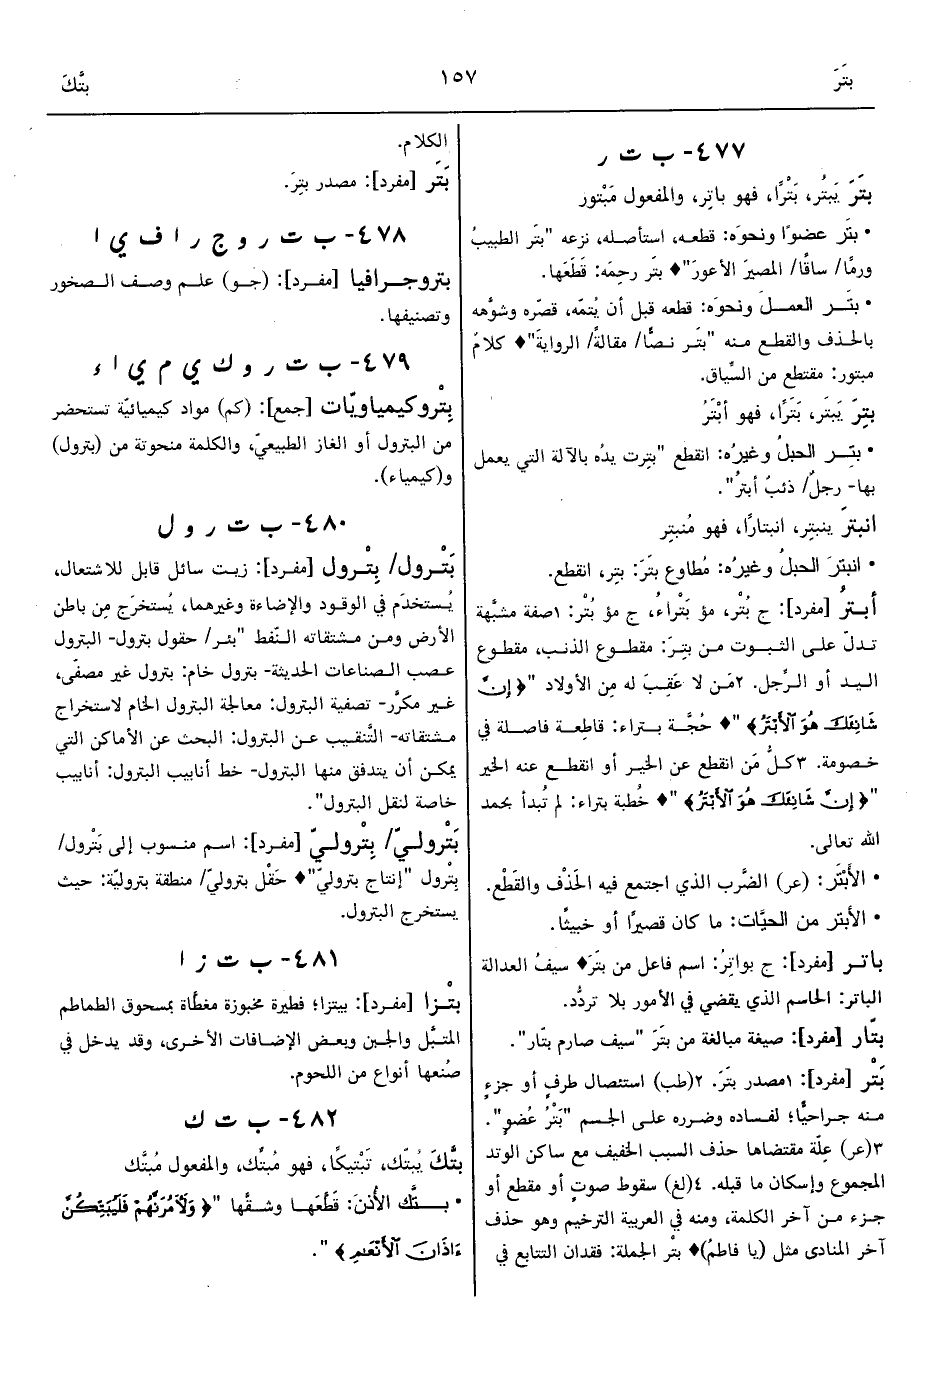 بتَرَ
١٥٧
بتَّكَ
٤٧٧- ب ت ر
بتَرَ يَبتُر، بَتْرًا، فهو باتِر، والمفعول مَبْتور
• بتَر عضوًا ونحوَه: قطعه، استأصله، نزعه "بتَر الطبيبُ
ورمًا/ ساقًا/ المصيرَ الأعورَ"♦ بتَر رحِمَه: قَطَعَها.
• بتَر العملَ ونحوَه: قطعه قبل أن يُتمَّه، قصّره وشوَّهه
بالحذف والقطع منه "بتَر نصًّا/ مقالةً/ الروايةَ"♦ كلامٌ
مبتور: مقتطع من السِّياق.
بتِرَ يَبتَر، بَتَرًا، فهو أبْتَرُ
• بتِر الحبلُ وغيرُه: انقطع "بتِرت يدُه بالآلة التي يعمل
بها- رجلٌ/ ذئبٌ أبترُ".
انبترَ ينبتِر، انبتارًا، فهو مُنبتِر
• انبترَ الحبلُ وغيرُه: مُطاوع بتَرَ: بتِر، انقطع.
أبترُ [مفرد]: ج بُتْر، مؤ بَتْراءُ، ج مؤ بُتْر: ١صفة مشبَّهة
تدلّ على الثبوت من بتِرَ: مقطوع الذنب، مقطوع
اليد أو الرِّجل. ٢مَن لا عَقِبَ له مِن الأولاد "﴿ إِنَّ
شَانِئَكَ هُوَ ٱلْأَبْتَرُ ﴾"♦ حُجَّة بتراء: قاطعة فاصلة في
خصومة. ٣كلُّ مَن انقطع عن الخير أو انقطع عنه الخير
"﴿ إِنَّ شَانِئَكَ هُوَ ٱلْأَبْتَرُ ﴾"♦ خُطبة بتراء: لم تُبدأ بحمد
الله تعالى.
• الأَبْتَر: (عر) الضَّرب الذي اجتمع فيه الحَذْف والقَطْع.
• الأبتر من الحيَّات: ما كان قصيرًا أو خبيثًا.
باتر [مفرد]: ج بواتِرُ: اسم فاعل من بتَرَ♦ سيفُ العدالة
الباتر: الحاسم الذي يقضي في الأمور بلا تردُّد.
بتّار [مفرد]: صيغة مبالغة من بتَرَ "سيف صارم بتّار".
بَتْر [مفرد]: ١مصدر بتَرَ. ٢(طب) استئصال طرفٍ أو جزءٍ
منه جراحيًّا؛ لفساده وضرره على الجسم "بَتْرُ عُضوٍ".
٣(عر) عِلّة مقتضاها حذف السبب الخفيف مع ساكن الوتد
المجموع وإسكان ما قبله. ٤(لغ) سقوط صوتٍ أو مقطع أو
جزء من آخر الكلمة، ومنه في العربية الترخيم وهو حذف
آخر المنادى مثل (يا فاطمُ)♦ بتْر الجملة: فقدان التتابع في
الكلام.
بَتَر [مفرد]: مصدر بتِرَ.
٤٧٨- ب ت ر و ج ر ا ف ي ا
بتروجرافيا [مفرد]: (جو) علم وصف الصخور
وتصنيفها.
٤٧٩- ب ت ر و ك ي م ي ا ء
بِتْروكيمياويّات [جمع]: (كم) مواد كيميائيّة تستحضر
من البترول أو الغاز الطبيعيّ، والكلمة منحوتة من (بترول)
و(كيمياء).
٤٨٠- ب ت ر و ل
بَتْرول/ بِتْرول [مفرد]: زيت سائل قابل للاشتعال،
يُستخدَم في الوقود والإضاءة وغيرهما، يُستخرَج مِن باطن
الأرض ومن مشتقاته النّفط "بئر/ حقول بترول- البترول
عصب الصناعات الحديثة- بترول خام: بترول غير مصفّى،
غير مكرَّر- تصفية البترول: معالجة البترول الخام لاستخراج
مشتقاته- التَّنقيب عن البترول: البحث عن الأماكن التي
يمكن أن يتدفق منها البترول- خط أنابيب البترول: أنابيب
خاصة لنقل البترول".
بَتْروليّ/ بِتْروليّ [مفرد]: اسم منسوب إلى بَتْرول/
بِتْرول "إنتاج بتروليّ"♦ حَقْل بتروليّ/ منطقة بتروليّة: حيث
يستخرج البترول.
٤٨١- ب ت ز ا
بتْزا [مفرد]: بيتزا؛ فطيرة مخبوزة مغطَّاة بمسحوق الطماطم
المتبَّل والجبن وبعض الإضافات الأخرى، وقد يدخل في
صُنعها أنواع من اللحوم.
٤٨٢- ب ت ك
بتَّكَ يُبتّك، تَبْتيكًا، فهو مُبتِّك، والمفعول مُبتَّك
• بتَّك الأُذنَ: قَطَعَها وشقَّها "﴿ وَلَآمُرَنَّهُمْ فَلَيُبَتِّكُنَّ
ءَاذَانَ ٱلْأَنْعَٰمِ ﴾".